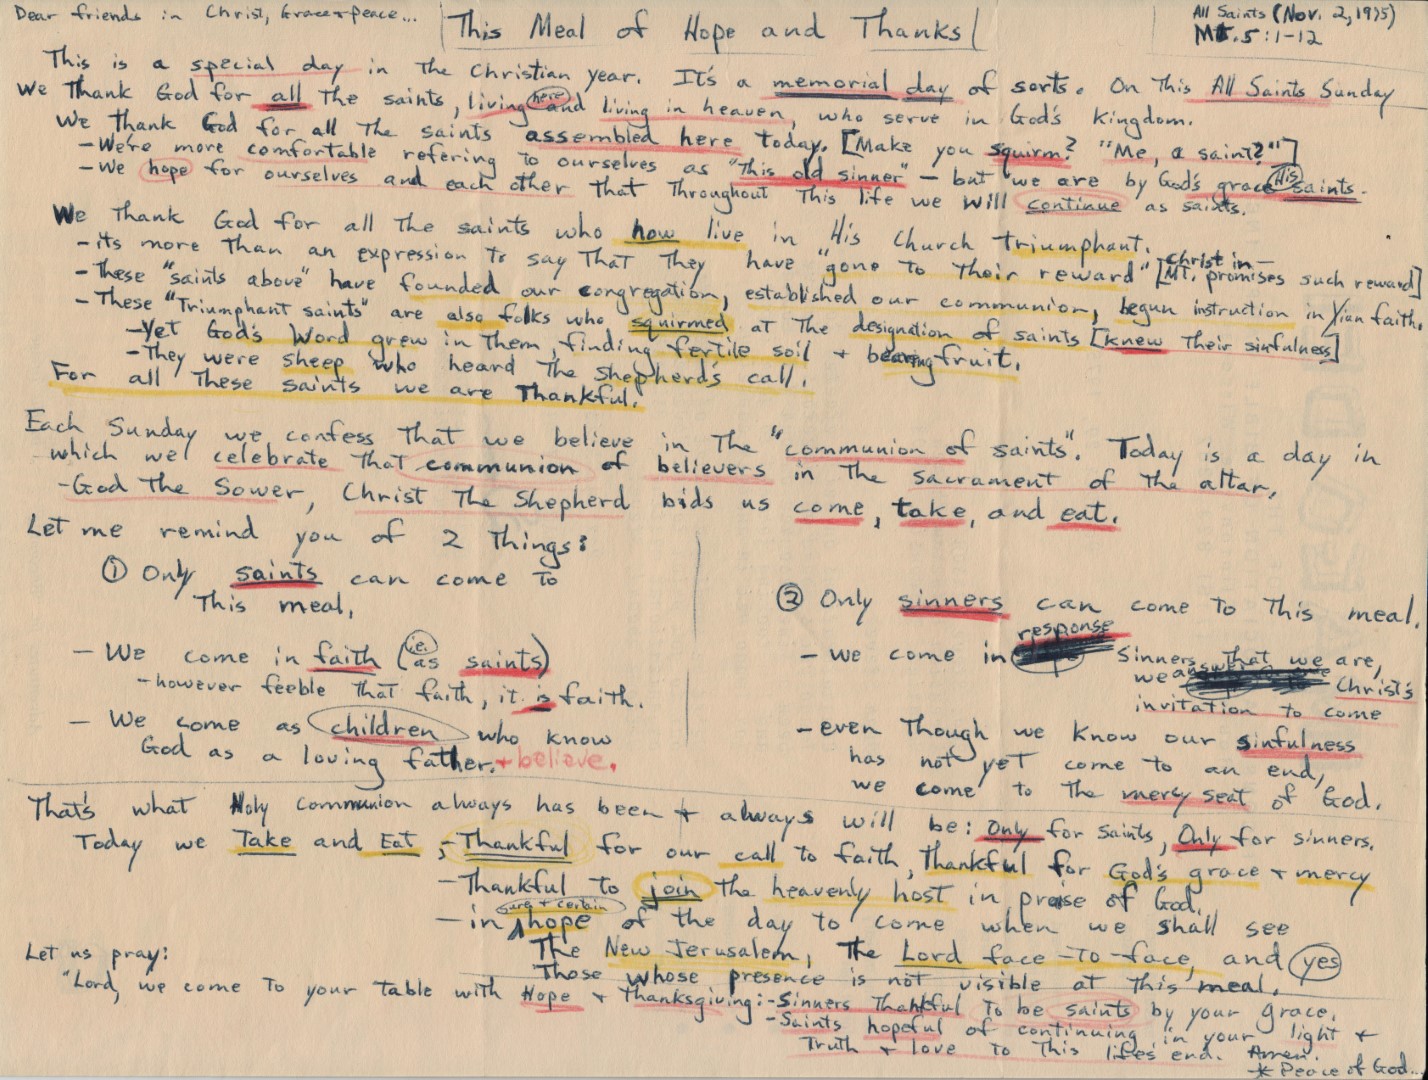 Dear friends in Christ, Grace + peace...
This Meal of Hope and Thanks
All Saints (Nov. 2, 1975)
Mt. 5:1-12
This is a special day in the Christian year. It's a memorial day of sorts. On this All Saints Sunday
we thank God for all the saints, living here and living in heaven, who serve in God's Kingdom.
We thank God for all the saints assembled here today. [Make you squirm? "Me, a saint?"]
- We're more comfortable refering to ourselves as "this old sinner" - but we are by God's grace His saints.
- We hope for ourselves and each other that throughout this life we will continue as saints.
We thank God for all the saints who now live in His Church Triumphant.
- its more than an expression to say that they have "gone to their reward" [Christ in Mt. promises such reward]
- These "saints above" have founded our congregation, established our communion, begun instruction in Xian faith.
- These "Triumphant saints" are also folks who squirmed at the designation of saints [knew their sinfulness]
- Yet God's Word grew in them, finding fertile soil + bearing fruit.
- They were sheep who heard the Shepherd's call.
For all these saints we are thankful.
Each Sunday we confess that we believe in the "communion of saints". Today is a day in
which we celebrate that communion of believers in the sacrament of the altar.
- God the Sower, Christ the Shepherd bids us come, take, and eat.
Let me remind you of 2 things:
① Only saints can come to
this meal.
- We come in faith (i.e. as saints)
- however feeble that faith, it is faith.
- We come as children who know
God as a loving father. + believe.
② Only sinners can come to this meal.
- we come in response
Sinners that we are,
we answer Christ's
invitation to come
- even though we know our sinfulness
has not yet come to an end,
we come to the mercy seat of God.
That's what Holy Communion always has been + always will be: Only for saints, Only for sinners.
Today we Take and Eat; - Thankful for our call to faith, thankful for God's grace + mercy
- Thankful to join the heavenly host in praise of God.
- in sure + certain hope of the day to come when we shall see
The New Jerusalem, the Lord face-to-face, and yes
Those whose presence is not visible at this meal.
Let us pray:
"Lord, we come to your table with Hope + Thanksgiving: - Sinners thankful to be saints by your grace.
- Saints hopeful of continuing in your light +
truth + love to this life's end. Amen.
* Peace of God...